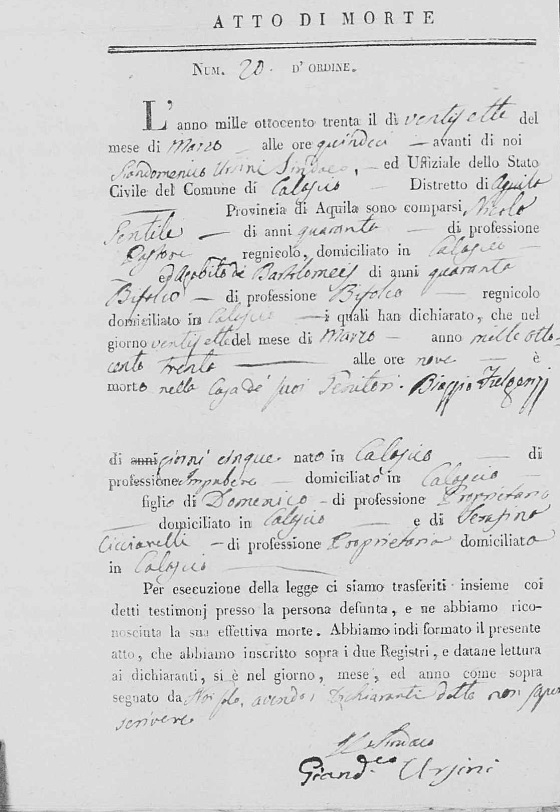 ATTO DI MORTE
NUM. 20. D'ORDINE.
L'anno mille ottocento trenta il dì ventisette del
mese di Marzo alle ore quindeci avanti di noi
Giandomenico Ursini Sindaco, ed Uffiziale dello Stato
Civile del Comune di Calascio Distretto di Aquila
Provincia di Aquila sono comparsi Nicola
Gentile di anni quaranta di professione
Pastore regnicolo, domiciliato in Calascio
ed Agabito de Bartolomeis di anni quaranta
Bifolco di professione Bifolco regnicolo
domiciliato in Calascio i quali han dichiarato, che nel
giorno ventisette del mese di Marzo anno mille otto-
cento trenta alle ore nove è
morto nella Casa de' suoi Genitori. Biaggio Fulgenzj
di anni giorni cinque nato in Calascio di
professione Impubere domiciliato in Calascio
figlio di Domenico di professione Proprietario
domiciliato in Calascio e di Serafina
Cicciarelli di professione Proprietaria domiciliata
in Calascio
Per esecuzione della legge ci siamo trasferiti insieme coi
detti testimonj presso la persona defunta, e ne abbiamo rico-
nosciuta la sua effettiva morte. Abbiamo indi formato il presente
atto, che abbiamo inscritto sopra i due Registri, e datane lettura
ai dichiaranti, si è nel giorno, mese, ed anno come sopra
segnato da Noi solo, avendo i Dichiaranti detto non saper
scrivere
Il Sindaco
Giand.co Ursini